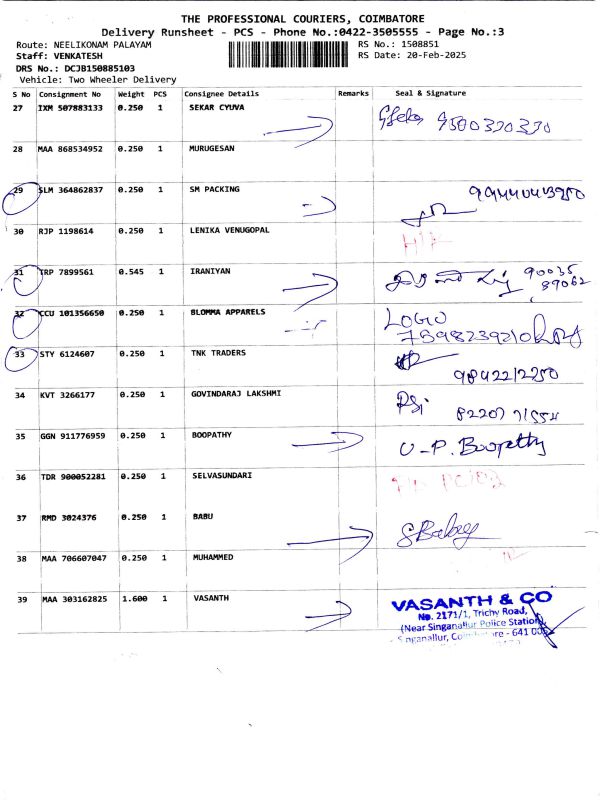 THE PROFESSIONAL COURIERS, COIMBATORE
Delivery Runsheet - PCS - Phone No.:0422-3505555 - Page No.:3
Route: NEELIKONAM PALAYAM RS No.: 1508851
Staff: VENKATESH RS Date: 20-Feb-2025
DRS No.: DCJB150885103
Vehicle: Two Wheeler Delivery
S No Consignment No Weight PCS Consignee Details Remarks Seal & Signature
27 IXM 507883133 0.250 1 SEKAR CYUVA 9500320330
28 MAA 868534952 0.250 1 MURUGESAN
29 SLM 364862837 0.250 1 SM PACKING
30 RJP 1198614 0.250 1 LENIKA VENUGOPAL
31 TRP 7899561 0.545 1 IRANIYAN 90035
89062
32 CCU 101356650 0.250 1 BLOMMA APPARELS LOGIO
7598239210
33 STY 6124607 0.250 1 TNK TRADERS
9842212250
34 KVT 3266177 0.250 1 GOVINDARAJ LAKSHMI
35 GGN 911776959 0.250 1 BOOPATHY U-P. Boopathy
36 TDR 900052281 0.250 1 SELVASUNDARI
37 RMD 3024376 0.250 1 BABU
38 MAA 706607047 0.250 1 MUHAMMED
39 MAA 303162825 1.600 1 VASANTH VASANTH & CO
No. 2171/1, Trichy Road,
(Near Singanallur Police Station)
Singanallur, Coimbatore - 641 005